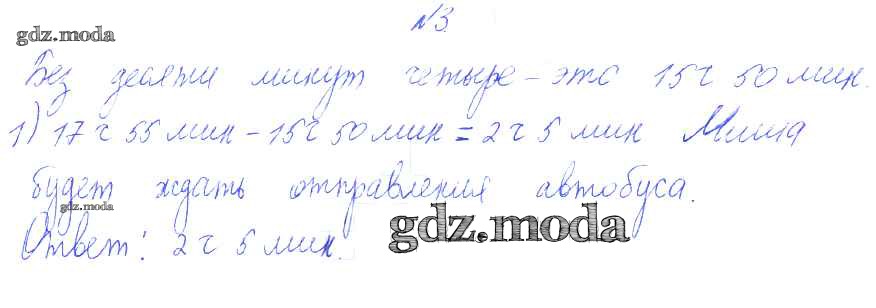 №3.
gdz.moda
Без десяти минут четыре - это 15 ч 50 мин.
1) 17 ч 55 мин - 15 ч 50 мин = 2 ч 5 мин Миша
будет ждать отправления автобуса.
gdz.moda
Ответ: 2 ч 5 мин.
gdz.moda